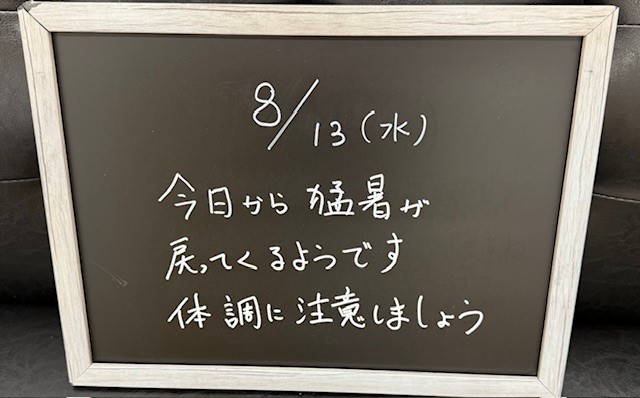 8/13(水)
今日から猛暑が
戻ってくるようです
体調に注意しましょう